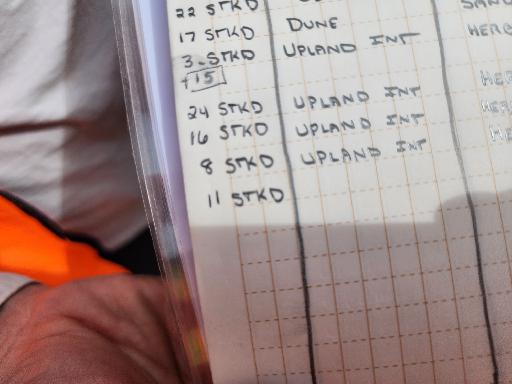 22 STKD SAND
17 STKD DUNE HERB
3 STKD UPLAND INT
+15
24 STKD UPLAND INT HER
16 STKD UPLAND INT HER
8 STKD UPLAND INT HE
11 STKD